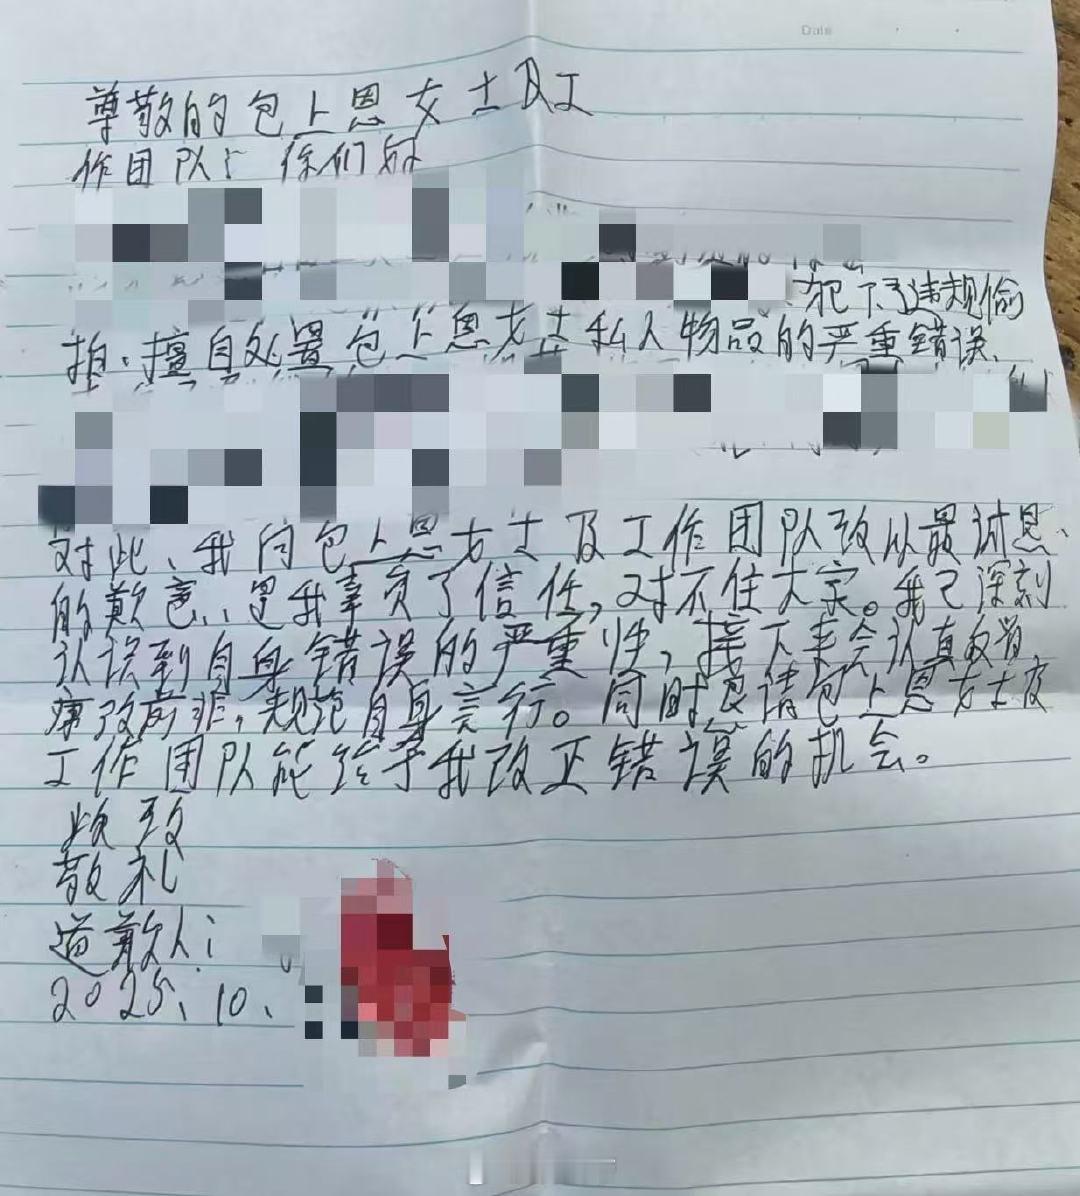 Date
尊敬的包上恩女士及工
作团队: 你们好
犯下了违规偷
拍、擅自处置包上恩女士私人物品的严重错误、
对此、我向包上恩女士及工作团队致以最诚恳、
的歉意、是我辜负了信任,对不住大家。我已深刻
认误到自身错误的严重性,接下来会认真
痛改前非,规范自身言行。同时恳请包上恩女士及
工作团队能给予我改正错误的机会。
敬礼
道歉人:
2025、10、